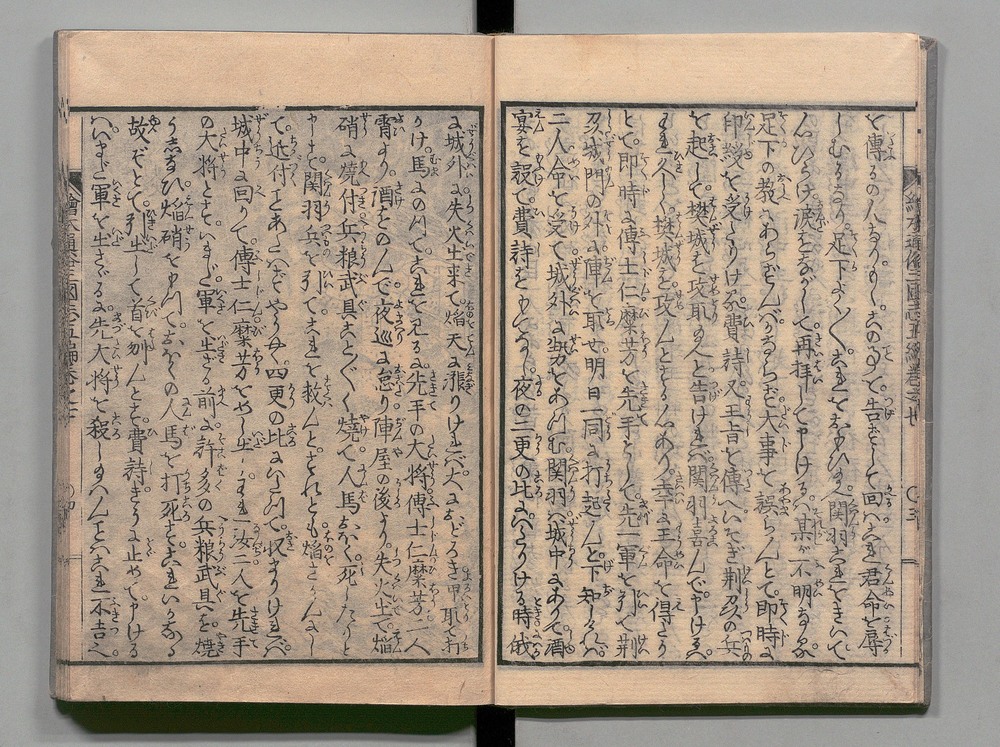 繪本通俗三國志五編卷之七 〇三
を傳るの人なりもし此の事を告ずして回へらば君命を辱
しむるなり。足下よく〱是をおもひ給へ関羽是をきいて
心ひらけ涙をながして再拝して申けるハ某が不明なる
足下の教にあらずんバかならず大事を誤らんとて即時に
印綬を受たりけれバ費詩又王旨を傳へいそぎ荊刕の兵
を起して樊城を攻取べしと告けれバ関羽喜んで申けるハ
われ久しく樊城を攻んとする心あり幸に王命を得たり
とて即時に傅士仁糜芳を先手として先一軍を引て荊
刕城門の外に陣を取せ明日一同に打起んと下知しけれバ
二人命を受て城外に勢をあつむ関羽ハ城中にあつて酒
宴を設て費詩をもてなし。夜の二更の比にいたりける時俄
に城外に失火出来て焔天に漲りけれバ大におどろき甲取て打
かけ馬にのつて是を見るに先手の大将傅士仁糜芳二人
宵より酒をのんで夜巡に怠り陣屋の後より失火出て焔
硝に焼付兵粮武具こと〲く焼て人馬おほく死したりと
申す。関羽兵を引て是を救んとすれども焔さかんにし
て近付ことあたハずやうやく四更の比にいたつて火しづまりけれバ
城中に回つて傅士仁糜芳をめし出しわれ汝二人を先手
の大将とせしにいまだ軍を出ざる前に許多の兵粮武具を焼
うしなひ焔硝をもつておほくの人馬を打死せしむ是いかなる
故ぞとて引出して首を刎んとす費詩きうに止めて申ける
ハいまだ軍を出さざるに先大将を殺し給ハんことハ是不吉也
繪本通俗三國志五編卷之七 〇四